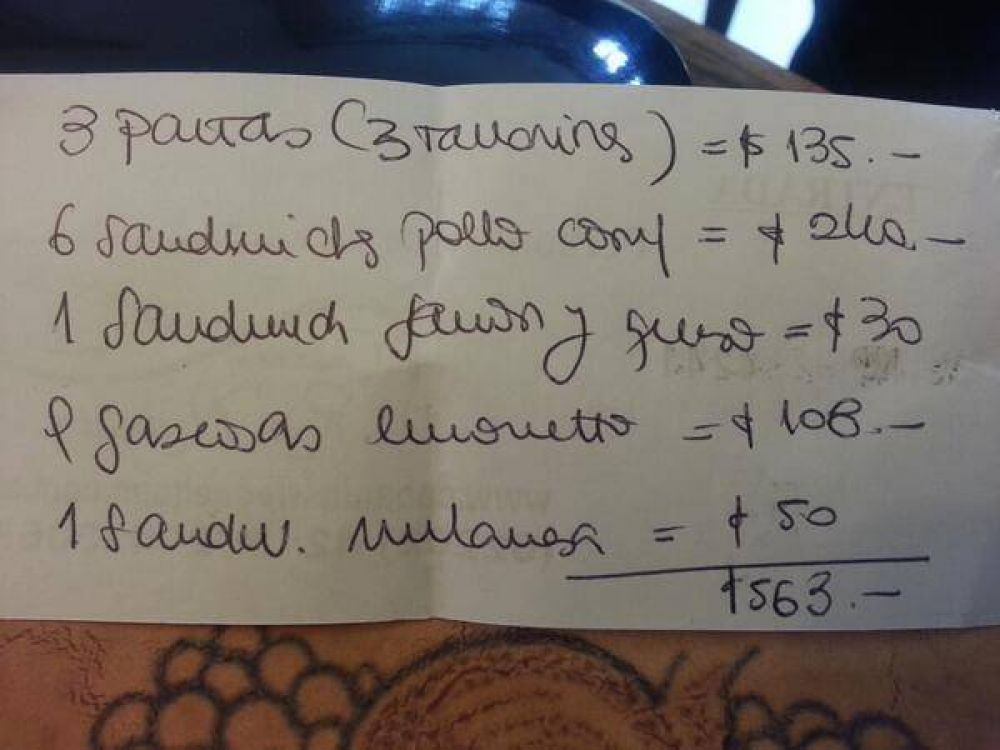 3 pastas (3 tallarines) = $ 135.-
6 Sandwichs pollo = $ 240.-
1 Sandwich jamon y queso = $ 30
9 gaseosas = $ 108.-
1 Sandw. milanesa = $ 50
$563.-